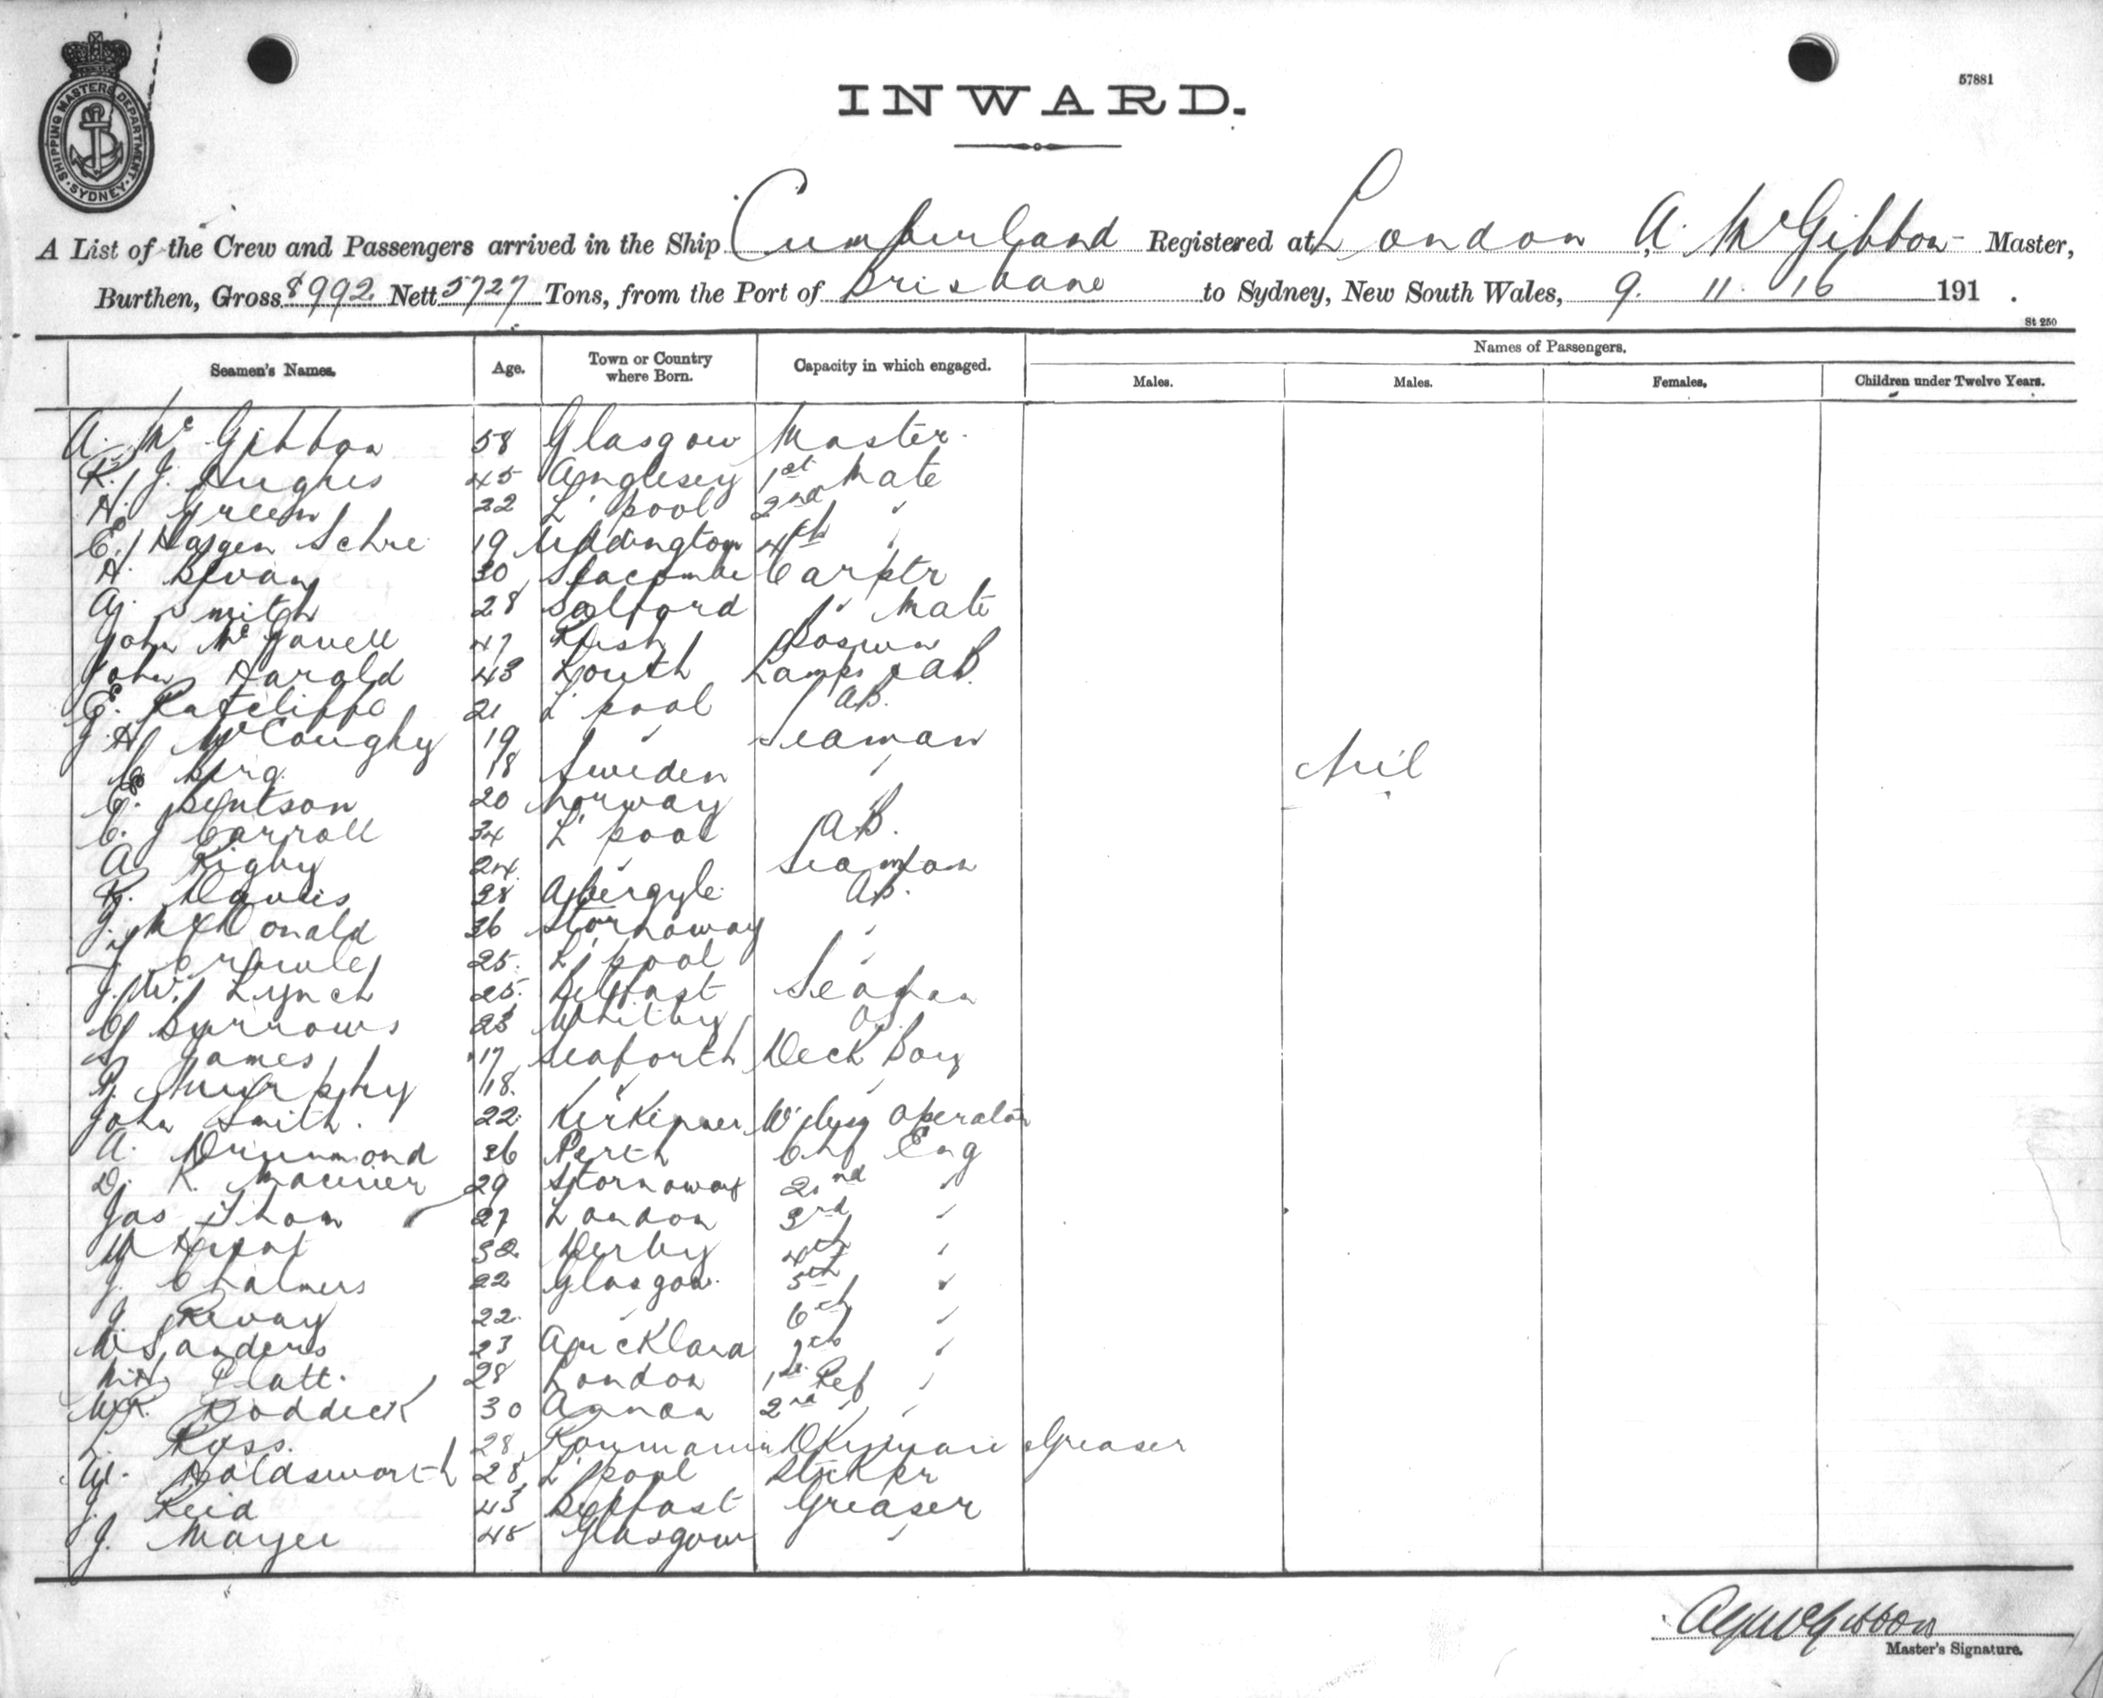 SHIPPING MASTERS DEPARTMENT · SYDNEY ·
57881
INWARD.
A List of the Crew and Passengers arrived in the Ship Cumberland Registered at London A. McGibbon Master,
Burthen, Gross 8992 Nett 5727 Tons, from the Port of Brisbane to Sydney, New South Wales, 9. 11. 16 191 .
St 250
Seamen's Names. Age. Town or Country where Born. Capacity in which engaged. Names of Passengers.
Males. Males. Females. Children under Twelve Years.
A. Mc Gibbon 58 Glasgow Master
R. J. Hughes 45 Anglesey 1st Mate
H. Green 22 L'pool 2nd "
E. Hagen Schre 19 Uddington 4th "
H. Bevan 30 Seacombe Carptr
A. Smith 28 Salford " Mate
John Mc 47 Rush Boswn
John Harold 43 Louth Lamps & AB.
E. Ratcliffe 21 L'pool AB.
J. H. McCoughy 19 " Seaman
Berg 18 Sweden "
Nil
E. Bentson 20 Norway "
C. J. Carroll 34 L'pool AB.
A. Rigby 24 " Seaman
R. Davies 38 Abergyle AB.
J. McDonald 36 Stornoway "
J. 25 L'pool "
J. W. Lynch 25 Belfast Seaman
Burrows 23 Whitby OS.
James 17 Seaforth Deck Boy
P. Murphy 18 " "
John Smith 22 Wless Operator
A. Drummond 36 Perth Chf Eng
D. K. 29 Stornoway 2nd "
Jas Thom 27 London 3rd "
W 32 Derby 4th "
J. Chalmers 22 Glasgow 5th "
J. 22 " 6th "
W Sanders 23 Auckland 7th "
W. H. Platt 28 London 1st Ref "
W. R. Roddick 30 Annan 2nd " "
L. Ross 28 Dkyman Greaser
W. Holdsworth 28 L'pool Stkpr
J. Reid 43 Belfast Greaser
J. Mayer 45 Glasgow "
A McGibbon
Master's Signature.